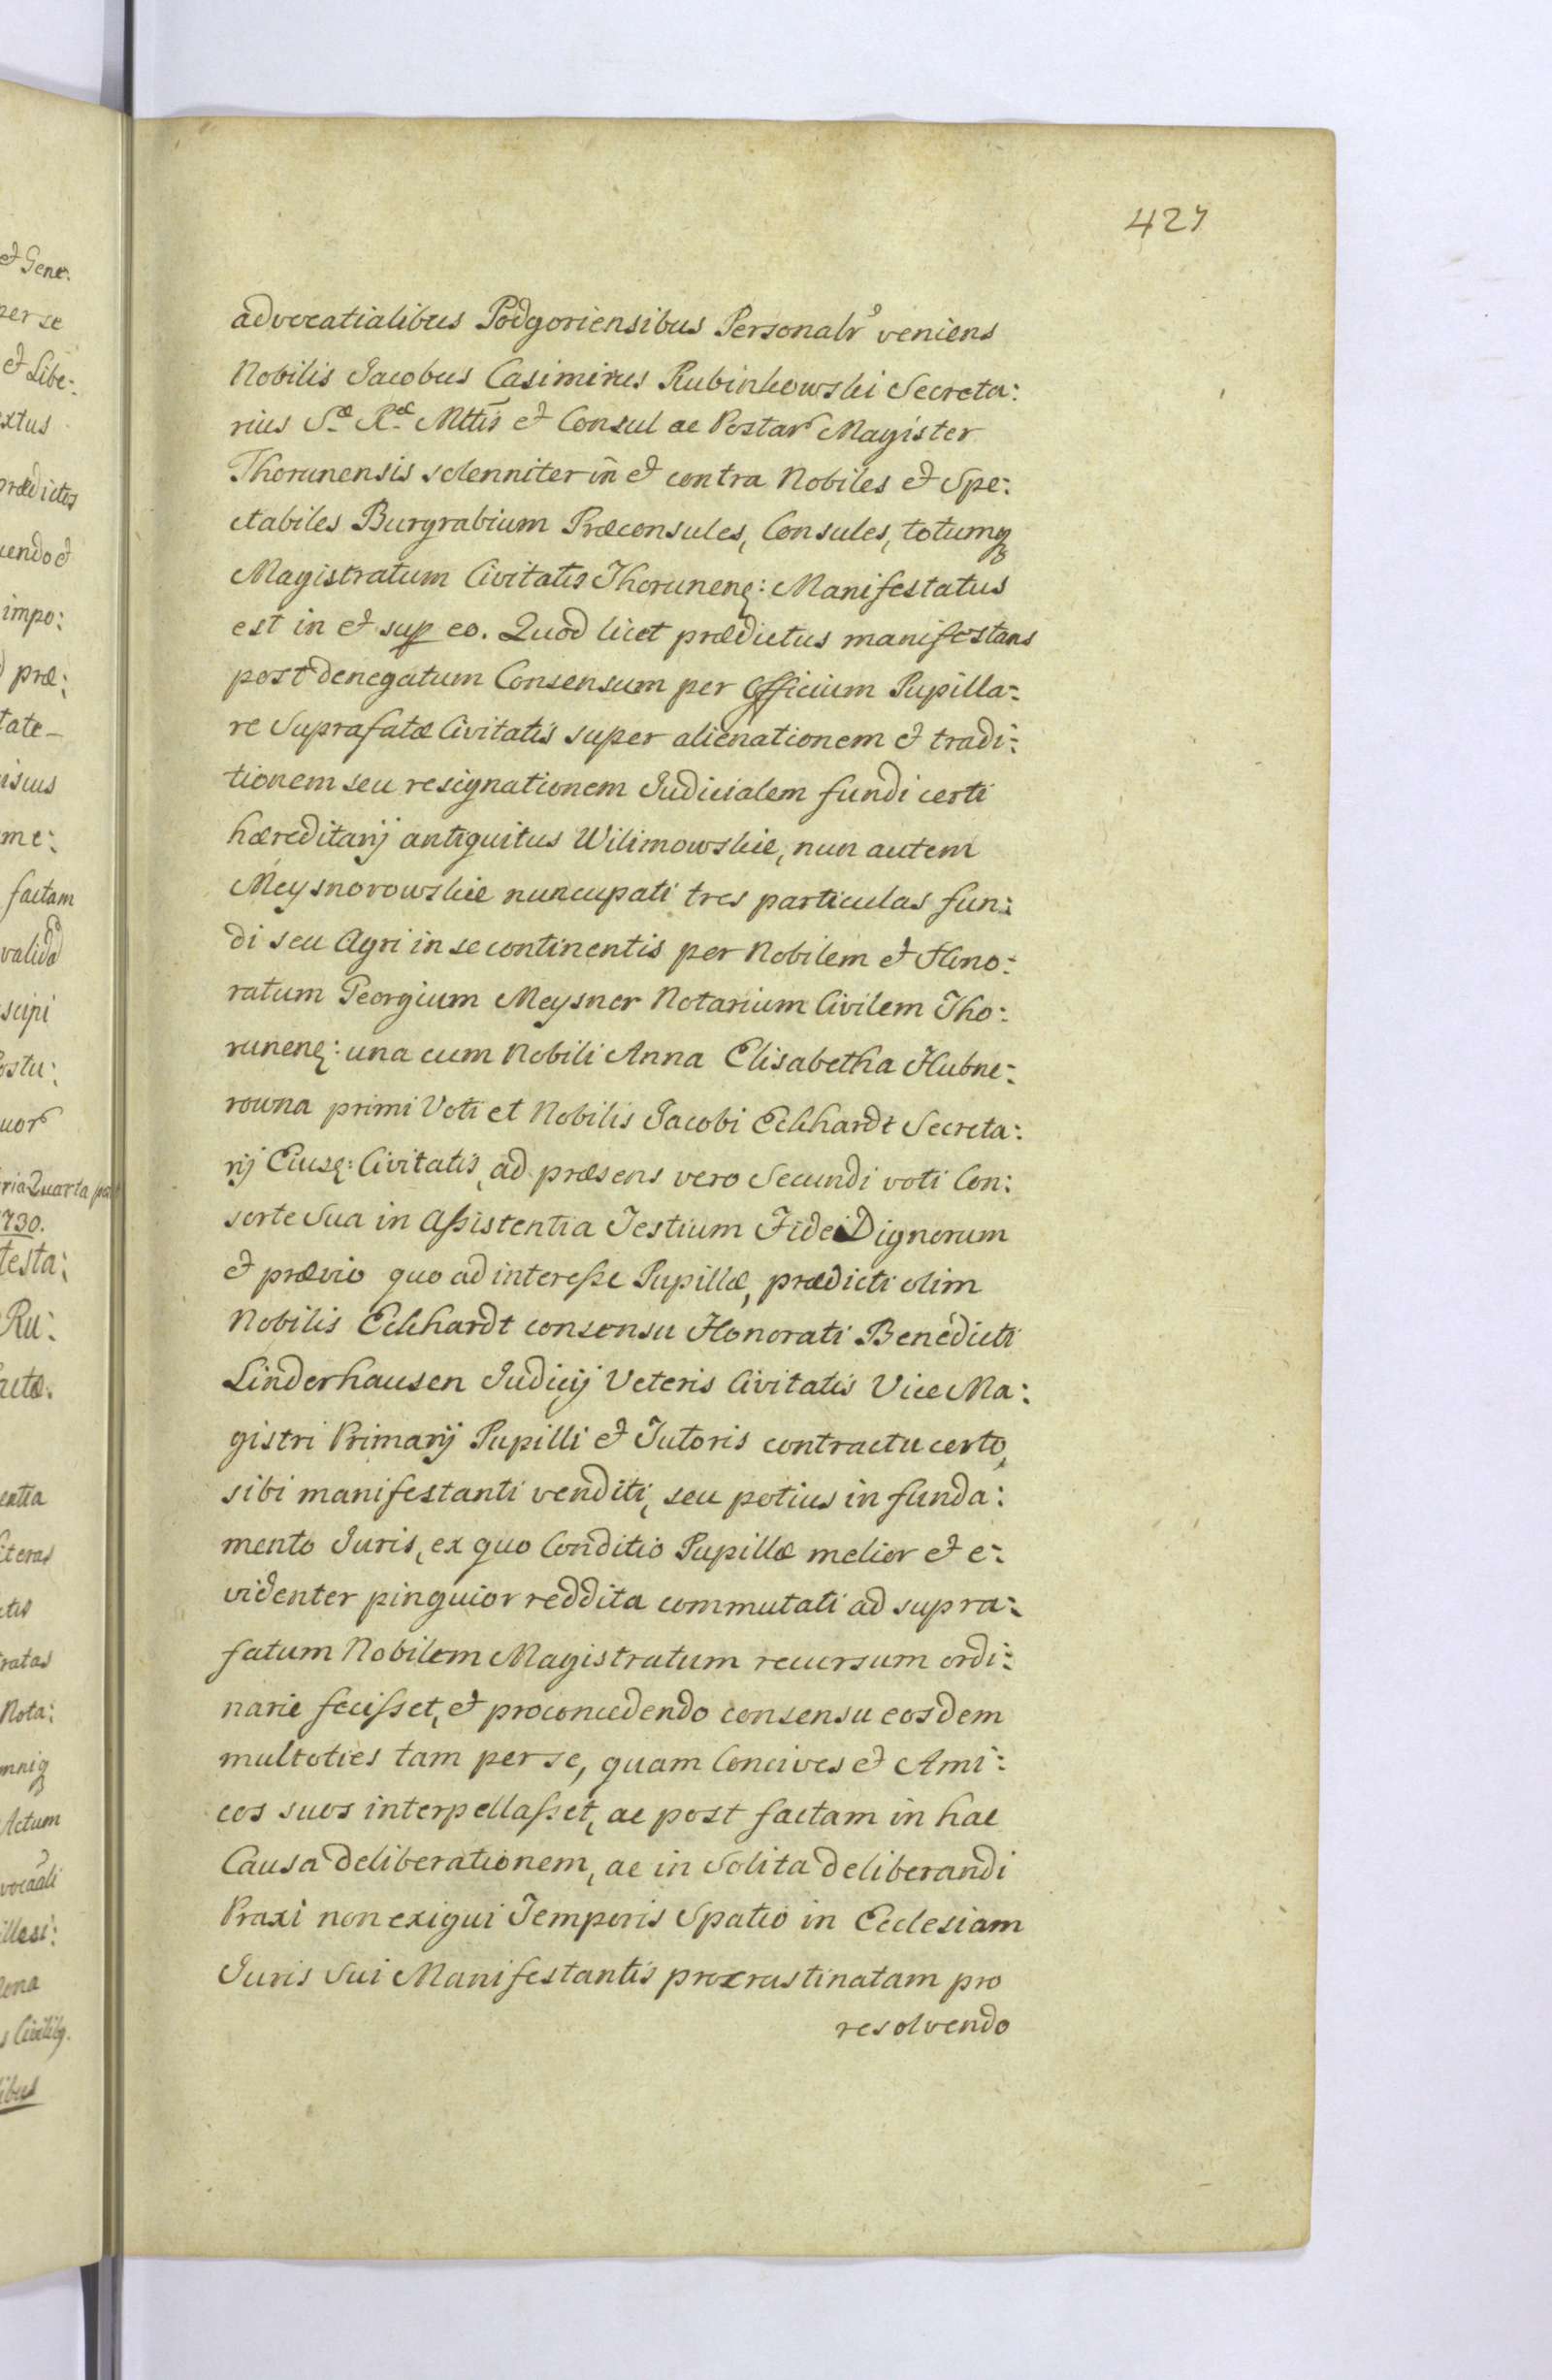 427
advocatialibus Podgoriensibus Personalr veniens
Nobilis Jacobus Casimirus Rubinkowski Secreta:
rius Sæ Ræ Mttis et Consul ac Postar Magister
Thorunensis solenniter in et contra Nobiles et Spe:
ctabiles Burgrabium Præconsules, Consules, totumq
Magistratum Civitatis Thorunens: Manifestatus
est in et sup eo. Quod licet prædictus manifestans
post denegatum Consensum per Officium Pupilla:
re Suprafatæ Civitatis super alienationem et tradi:
tionem seu resignationem Judicialem fundi certi
hæreditarij antiquitus Wilimowskie, nun autem
Meysnorowskie nuncupati tres particulas fun:
di seu Agri in se continentis per Nobilem et Hono:
ratum Georgium Meysner Notarium Civilem Tho:
runens: una cum Nobili Anna Elisabetha Hubne:
rowna primi Voti et Nobilis Jacobi Eckhardt Secreta:
rij Eiusq: Civitatis, ad præsens vero Secundi voti Con:
sorte Sua in Assistentia Testium Fide Dignorum
et prævio quo ad interesse Pupillæ, prædicti olim
Nobilis Eckhardt consensu Honorati Benedicti
Linderhausen Judicij Veteris Civitatis Vice Ma:
gistri Primarij Pupilli et Tutoris contractu certo,
sibi manifestanti venditi, seu potius in funda:
mento Juris, ex quo Conditio Pupillæ melior et e:
videnter pinguior reddita commutati ad supra:
fatum Nobilem Magistratum recursum ordi:
narie fecisset, et proconcedendo consensu eosdem
multoties tam per se, quam Concives et Ami:
cos suos interpellasset, ac post factam in hac
Causa deliberationem, ac in Solita deliberandi
Praxi non exigui Temporis Spatio in Ecclesiam
Juris Sui Manifestantis procrastinatam pro
resolvendo